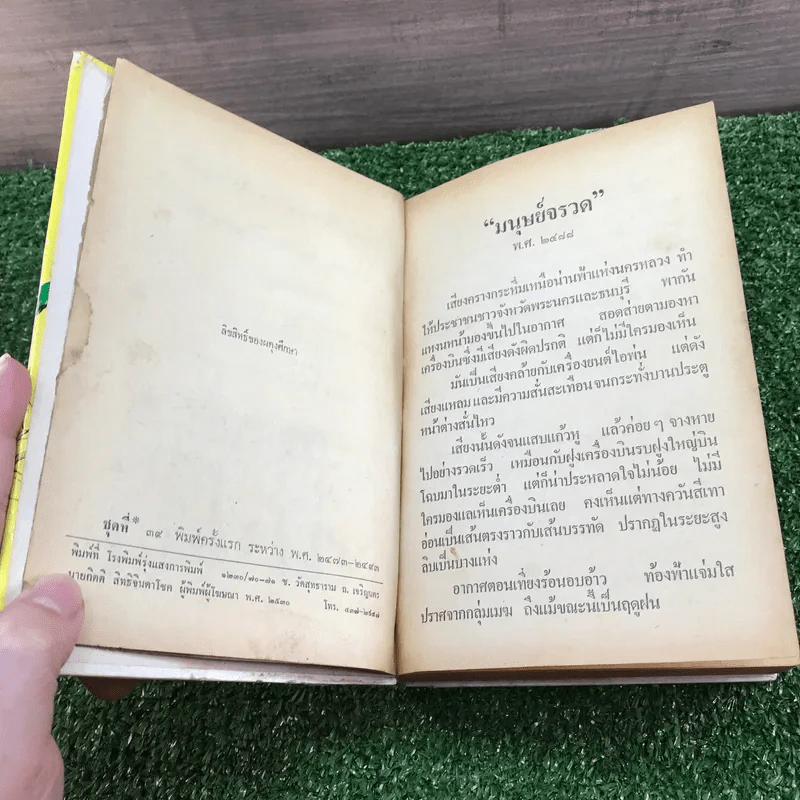 ลิขสิทธิ์ของผดุงศึกษา
ชุดที่* ๓๙ พิมพ์ครั้งแรก ระหว่าง พ.ศ. ๒๔๗๓-๒๔๙๓
พิมพ์ที่ โรงพิมพ์รุ่งแสงการพิมพ์ ๑๒๓๐/๗๐-๗๑ ซ. วัดสุทธาราม ถ. เจริญนคร
นายกิตติ สิทธิจินดาโชค ผู้พิมพ์ผู้โฆษณา พ.ศ. ๒๕๓๐ โทร.
“มนุษย์จรวด”
พ.ศ. ๒๔๘๘
เสียงครางกระหึ่มเหนือน่านฟ้าแห่งนครหลวง ทำ
ให้ประชาชนชาวจังหวัดพระนครและธนบุรี พากัน
แหงนหน้ามองขึ้นไปในอากาศ สอดส่ายตามองหา
เครื่องบินซึ่งมีเสียงดังผิดปรกติ แต่ก็ไม่มีใครมองเห็น
มันเป็นเสียงคล้ายกับเครื่องยนต์ไอพ่น แต่ดัง
เสียงแหลม และมีความสั่นสะเทือน จนกระทั่งบานประตู
หน้าต่างสั่นไหว
เสียงนั้นดังจนแสบแก้วหู แล้วค่อย ๆ จางหาย
ไปอย่างรวดเร็ว เหมือนกับฝูงเครื่องบินรบฝูงใหญ่บิน
โฉบมาในระยะต่ำ แต่ก็น่าประหลาดใจไม่น้อย ไม่มี
ใครมองแลเห็นเครื่องบินเลย คงเห็นแต่ทางควันสีเทา
อ่อนเป็นเส้นตรงราวกับเส้นบรรทัด ปรากฏในระยะสูง
ลิบเป็นบางแห่ง
อากาศตอนเที่ยงร้อนอบอ้าว ท้องฟ้าแจ่มใส
ปราศจากกลุ่มเมฆ ถึงแม้ขณะนี้เป็นฤดูฝน